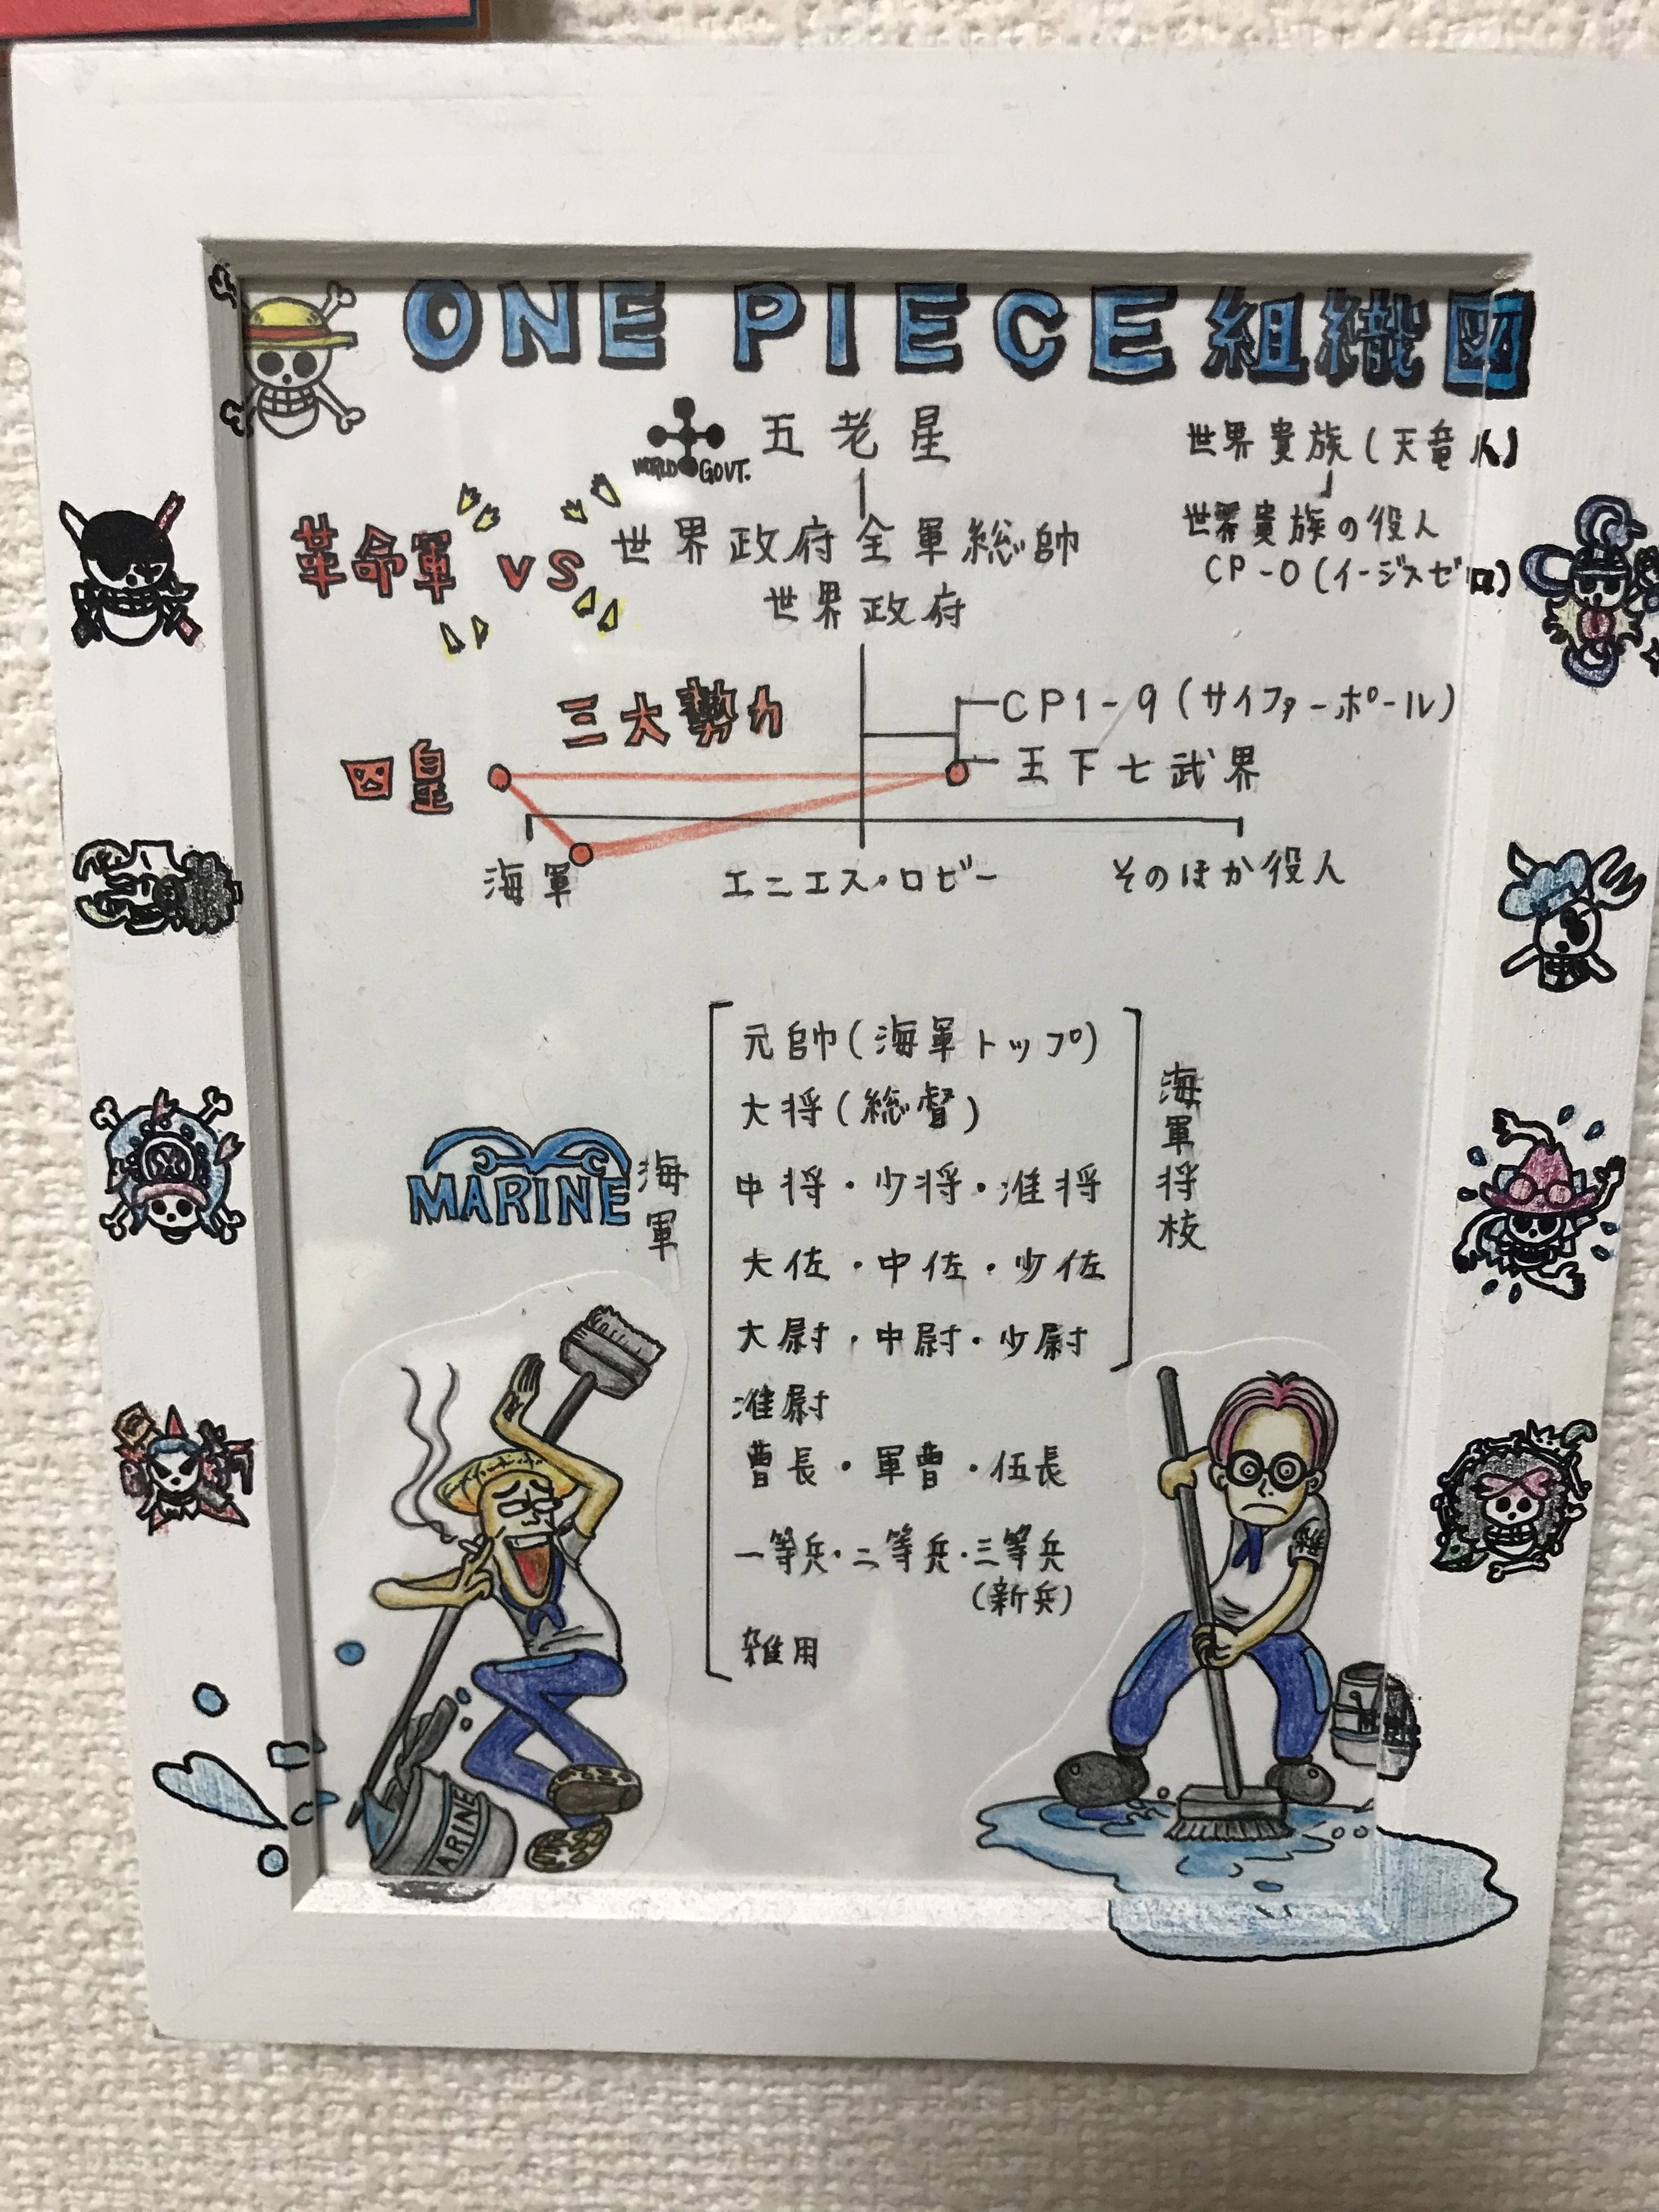 ONE PIECE 組織図
WORLD GOVT.
五老星
世界貴族(天竜人)
世界貴族の役人
CP-0(イージスゼロ)
革命軍 VS 世界政府全軍総帥
世界政府
三大勢力
CP1-9(サイファーポール)
四皇
王下七武界
海軍
エニエス・ロビー
そのほか役人
MARINE
海軍
元帥(海軍トップ)
大将(総督)
中将・少将・准将
大佐・中佐・少佐
大尉・中尉・少尉
海軍将校
准尉
曹長・軍曹・伍長
一等兵・二等兵・三等兵
(新兵)
雑用
ARINE